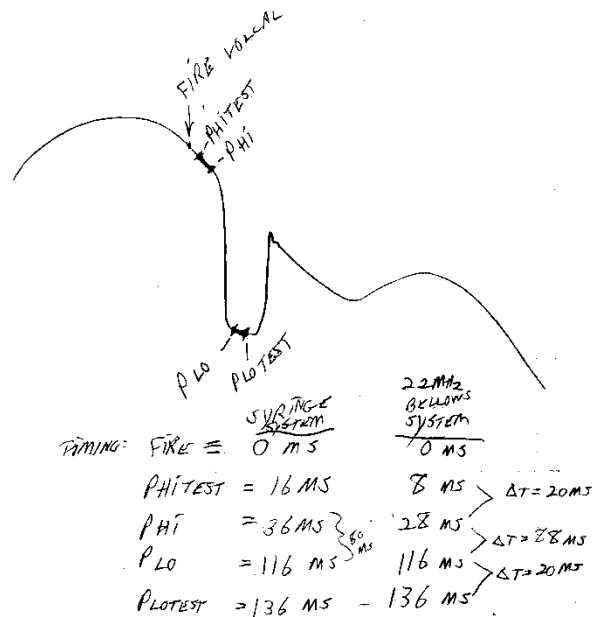 FIRE VOLCAL
PHITEST
PHI
PLO
PLOTEST
SYRINGE SYSTEM
22MHz BELLOWS SYSTEM
TIMING: FIRE = 0 MS 0 MS
PHITEST = 16 MS 8 MS ΔT = 20MS
PHI = 36 MS 80 MS 28 MS ΔT = 88 MS
PLO = 116 MS 116 MS ΔT = 20MS
PLOTEST = 136 MS - 136 MS